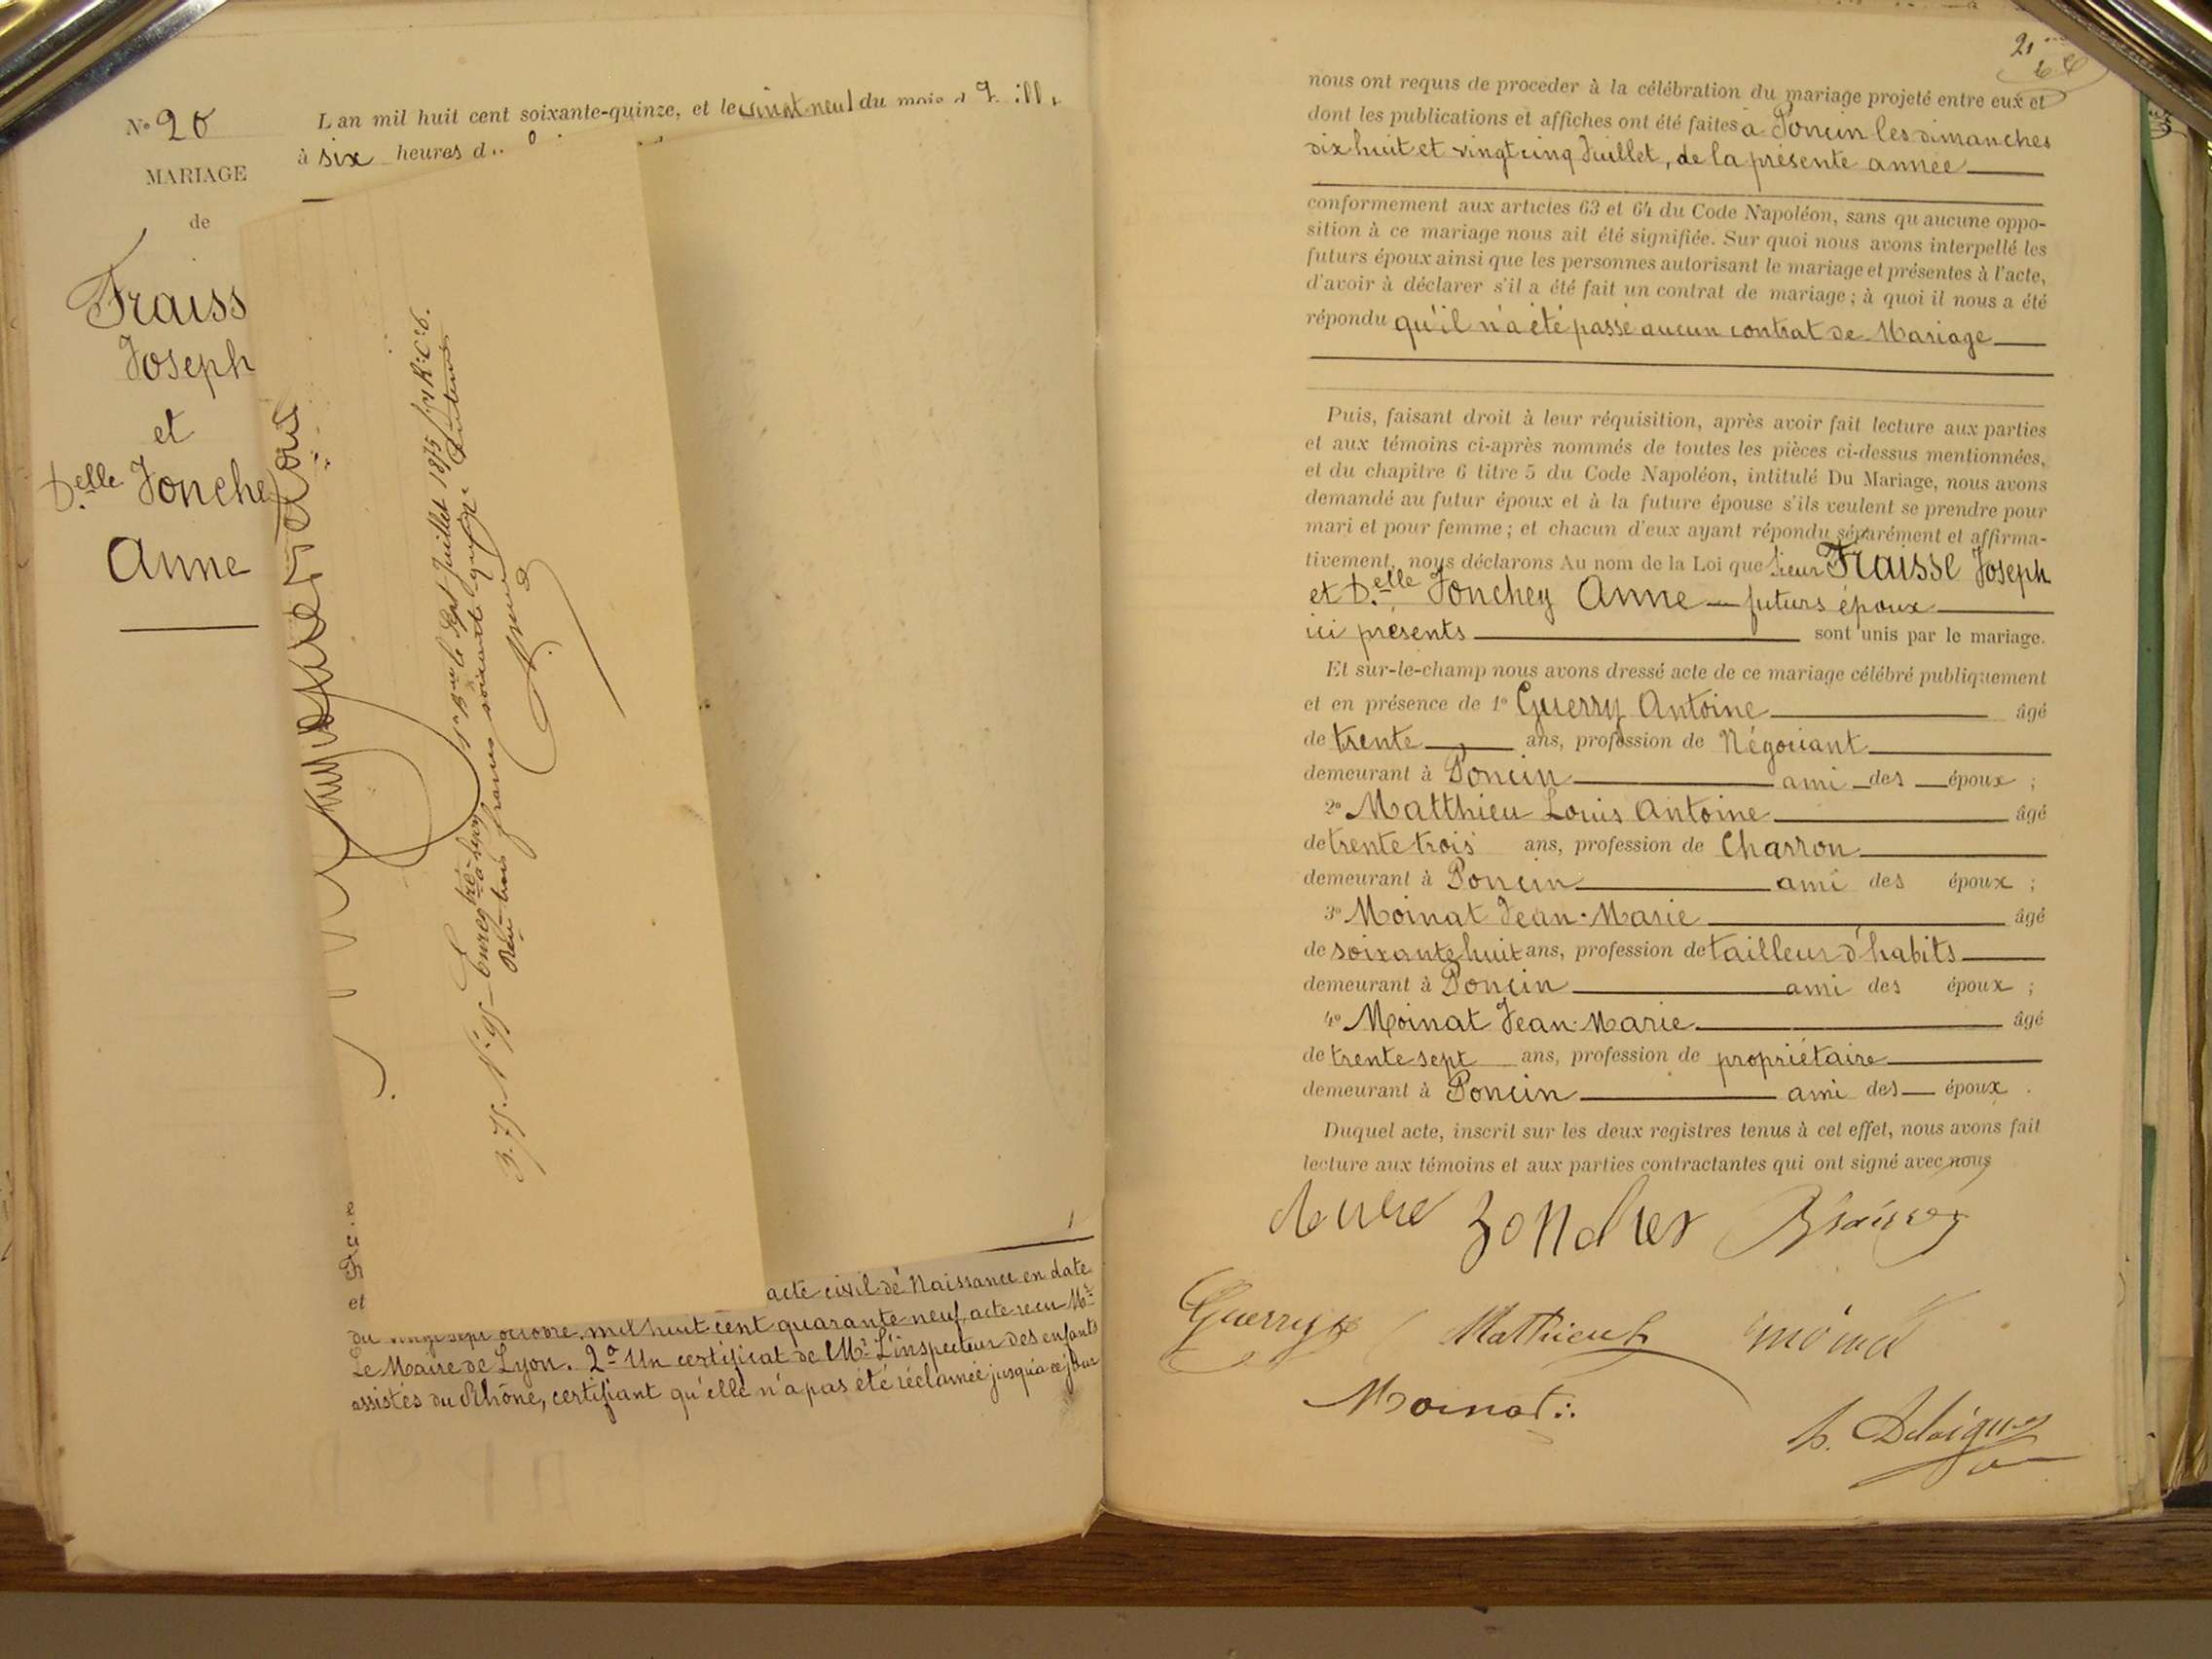 N° 20
MARIAGE
de
Fraiss
Joseph
et
Delle Jonche
Anne
L an mil huit cent soixante-quinze, et le vingt neuf du mois
à six heures d
3.75. N° 95 — Enreg tré à
Sept Juillet 1875
Reçu trois francs soixante quinze centimes
et
acte civil de Naissance en date
du vingt sept octobre, mil huit cent quarante neuf, acte reçu Mr
Le Maire de Lyon. 2° Un certificat de Mr L'inspecteur des enfants
assistés du Rhône, certifiant qu'elle n'a pas été réclamée jusqu'à ce jour
21
nous ont requis de proceder à la célébration du mariage projeté entre eux et
dont les publications et affiches ont été faites à Poncin les dimanches
dix huit et vingt cinq Juillet, de la présente année
conformement aux articles 63 et 64 du Code Napoléon, sans qu aucune oppo-
sition à ce mariage nous ait été signifiée. Sur quoi nous avons interpellé les
futurs époux ainsi que les personnes autorisant le mariage et présentes à l'acte,
d'avoir à déclarer s'il a été fait un contrat de mariage ; à quoi il nous a été
répondu qu'il n'a été passé aucun contrat de Mariage
Puis, faisant droit à leur réquisition, après avoir fait lecture aux parties
et aux témoins ci-après nommés de toutes les pièces ci-dessus mentionnées,
et du chapitre 6 titre 5 du Code Napoléon, intitulé Du Mariage, nous avons
demandé au futur époux et à la future épouse s'ils veulent se prendre pour
mari et pour femme ; et chacun d'eux ayant répondu séparément et affirma-
tivement, nous déclarons Au nom de la Loi que Sieur Fraisse Joseph
et Delle Jonchey Anne — futurs époux
ici présents sont unis par le mariage.
Et sur-le-champ nous avons dressé acte de ce mariage célébré publiquement
et en présence de 1° Guerry Antoine âgé
de trente ans, profession de Négociant
demeurant à Poncin ami des époux ;
2° Matthieu Louis Antoine âgé
de trente trois ans, profession de Charron
demeurant à Poncin ami des époux ;
3° Moinat Jean-Marie âgé
de soixante huit ans, profession de tailleur d'habits
demeurant à Poncin ami des époux ;
4° Moinat Jean-Marie âgé
de trente sept ans, profession de propriétaire
demeurant à Poncin ami des époux .
Duquel acte, inscrit sur les deux registres tenus à cet effet, nous avons fait
lecture aux témoins et aux parties contractantes qui ont signé avec nous
Guerry Mathieu
Moinat